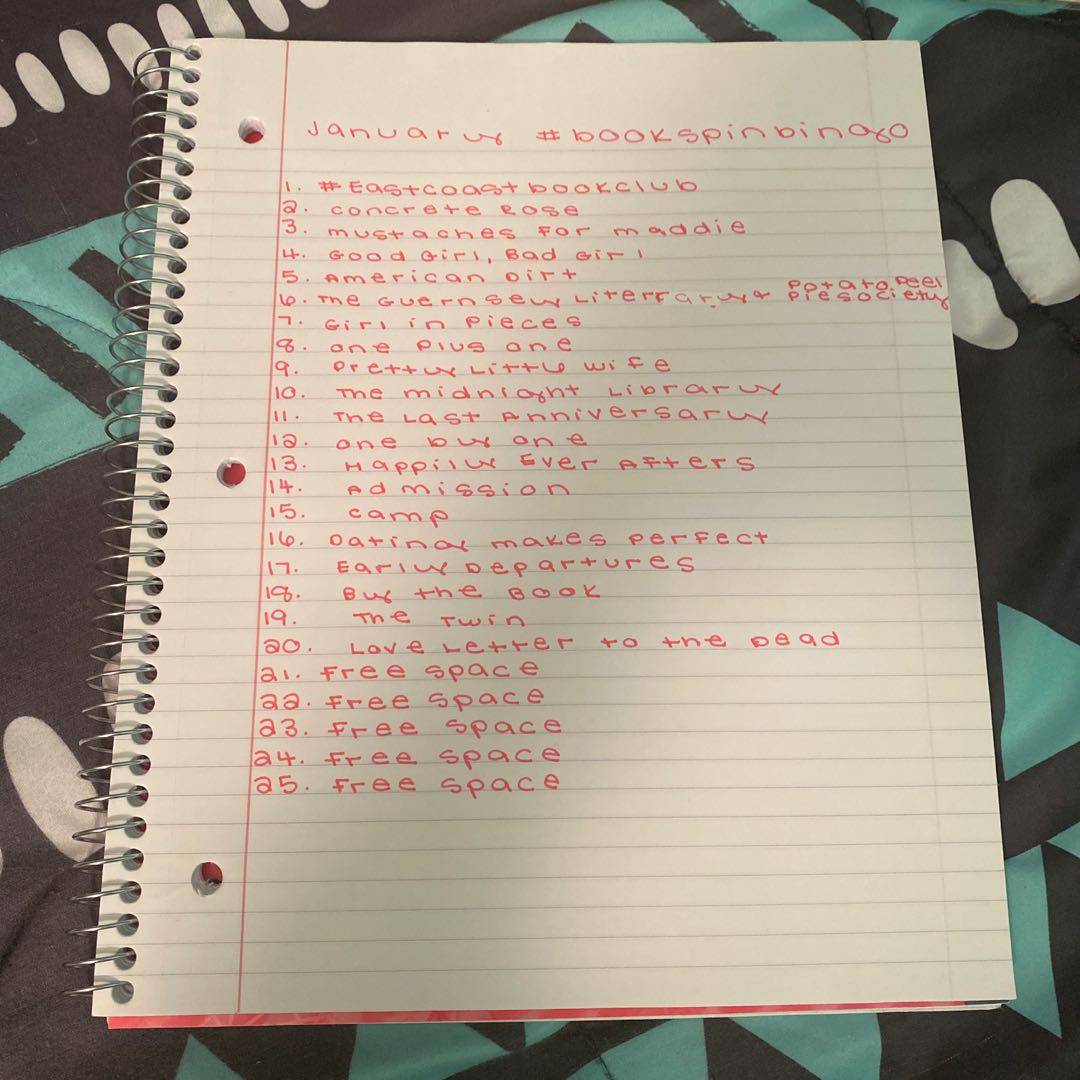 January #bookspinbingo
1. #Eastcoastbookclub
2. Concrete Rose
3. Mustaches for Maddie
4. Good Girl, Bad Girl
5. American Dirt
6. The Guernsey Literrary & Potato Peel
Pie Society
7. Girl in Pieces
8. One Plus One
9. Pretty Little Wife
10. The Midnight Library
11. The Last Anniversary
12. One by one
13. Happily Ever Afters
14. Admission
15. Camp
16. Dating makes Perfect
17. Early Departures
18. By the Book
19. The Twin
20. Love Letter to the Dead
21. Free space
22. Free space
23. Free space
24. Free space
25. Free space